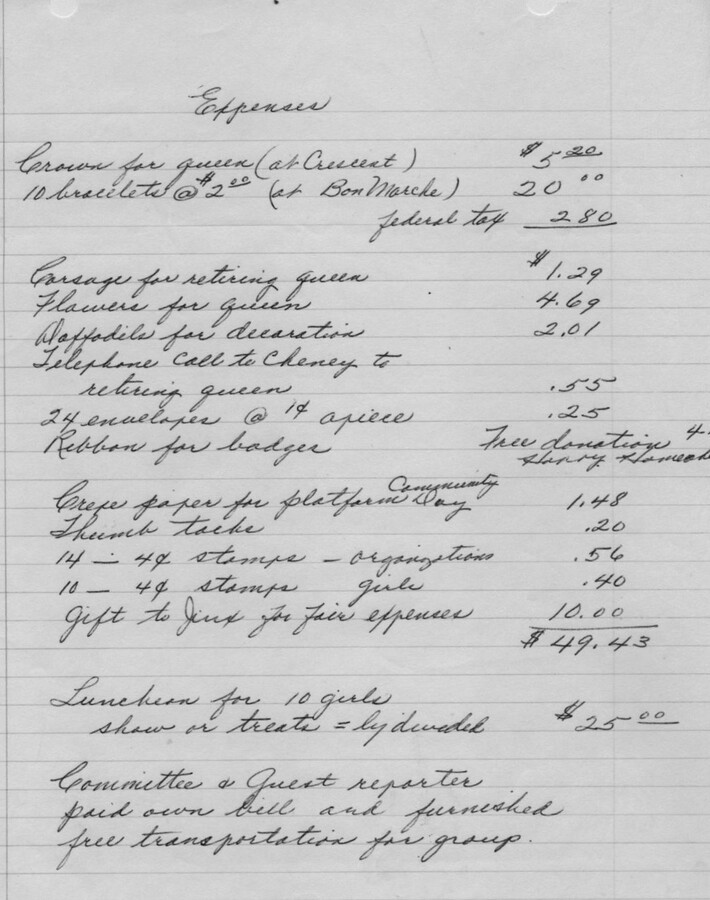 Expenses
Crown for queen (at Crescent) $5 20
10 bracelets @ $2 00 (at Bon Marche) 20 00
federal tax 2 80
Corsage for retiring queen $1.29
Flowers for queen 4.69
Daffodils for decoration 2.01
Telephone call to Cheney to
retiring queen .55
24 envelopes @ 1¢ apiece .25
Ribbon for badges Free donation 4.
Crepe paper for platform Community Day 1.48
Thumb tacks .20
14 – 4¢ stamps – organizations .56
10 – 4¢ stamps girls .40
Gift to Jinx for fair expenses 10.00
$49.43
Luncheon for 10 girls
show or treats = ly divided $25 00
Committee & Guest reporter
paid own bill and furnished
free transportation for group.